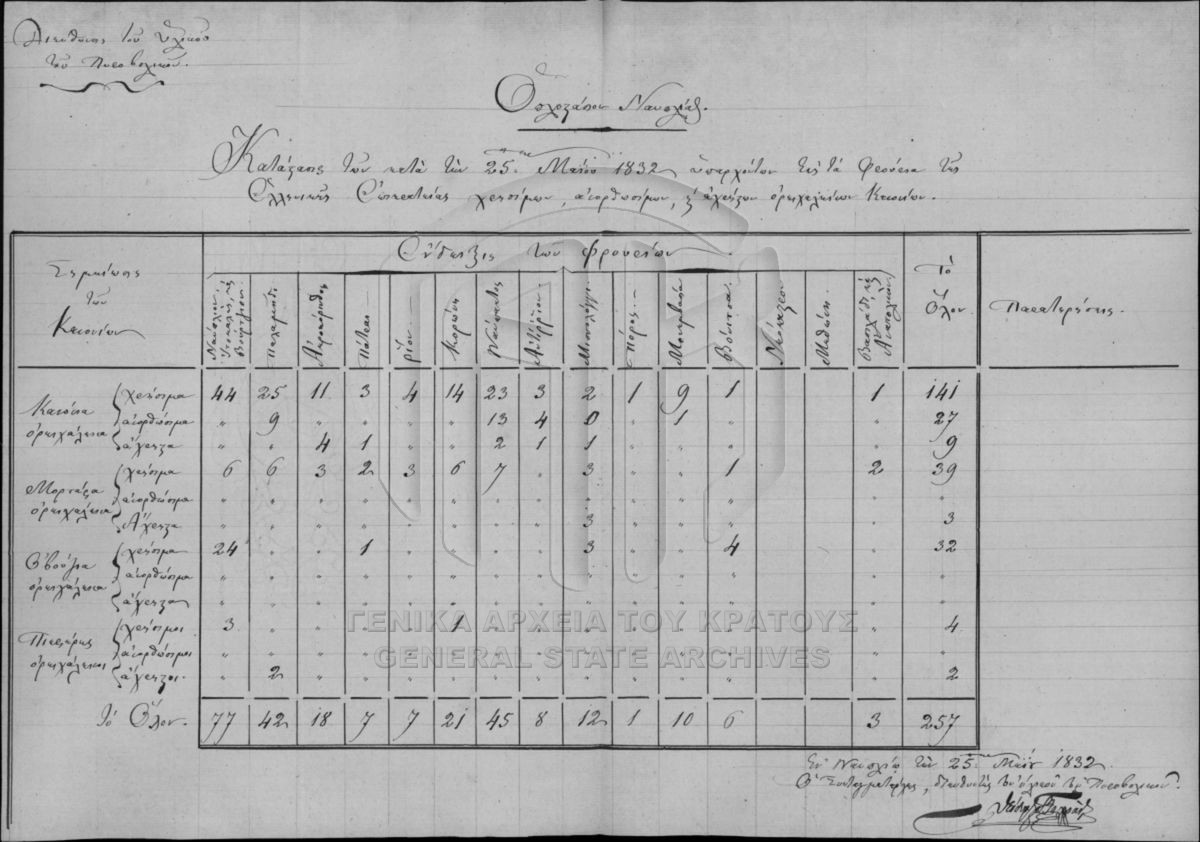 Διεύθυνσις του Υλικού
του Πυροβολικού.
Οπλοστάσιον Ναυπλίας.
Κατάστασις των κατά την 25 Μαΐου 1832 υπαρχόντων εις τα φρούρια της
Ελληνικής Επικρατείας χρησίμων, διορθωσίμων, και αχρήστων ορειχαλκίνων Κανονίων.
Σημείωσις των Κανονίων
Ένδειξις των φρουρίων
Το Όλον.
Παρατηρήσεις.
Ναύπλιον, Ιτσκαλές, και Βούρτσιον
Παλαμήδι
Ακροκόρινθος
Πάτραι
Ρίον
Κορώνη
Ναύπακτος
Αντίρριον
Μισολόγγι
Πόρος
Μονεμβασία
Βόνιτσα
Μεθώνη
Βασιλάδι, και Ανατολικόν
Κανόνια ορειχάλκινα
χρήσιμα 44 25 11 3 4 14 23 3 2 1 9 1 1 141
διορθώσιμα " 9 " " " " 13 4 0 " 1 " " 27
άχρηστα " " 4 1 " " 2 1 1 " " " " 9
Μορτάρια ορειχάλκινα
χρήσιμα 6 6 3 2 3 6 7 " 3 " " 1 2 39
διορθώσιμα " " " " " " " " " " " " " "
άχρηστα " " " " " " " " 3 " " " " 3
Οβούζια ορειχάλκινα
χρήσιμα 24 " " 1 " " " " 3 " " 4 " 32
διορθώσιμα " " " " " " " " " " " " " "
άχρηστα " " " " " " " " " " " " " "
ορειχάλκινοι
χρήσιμοι 3 " " " " 1 " " " " " " " 4
διορθώσιμοι " " " " " " " " " " " " " "
άχρηστοι " 2 " " " " " " " " " " " 2
το Όλον. 77 42 18 7 7 21 45 8 12 1 10 6 3 257
ΓΕΝΙΚΑ ΑΡΧΕΙΑ ΤΟΥ ΚΡΑΤΟΥΣ
GENERAL STATE ARCHIVES
Εν Ναυπλίω την 25 Μαΐου 1832
Ο Συνταγματάρχης, διευθυντής του υλικού του Πυροβολικού.